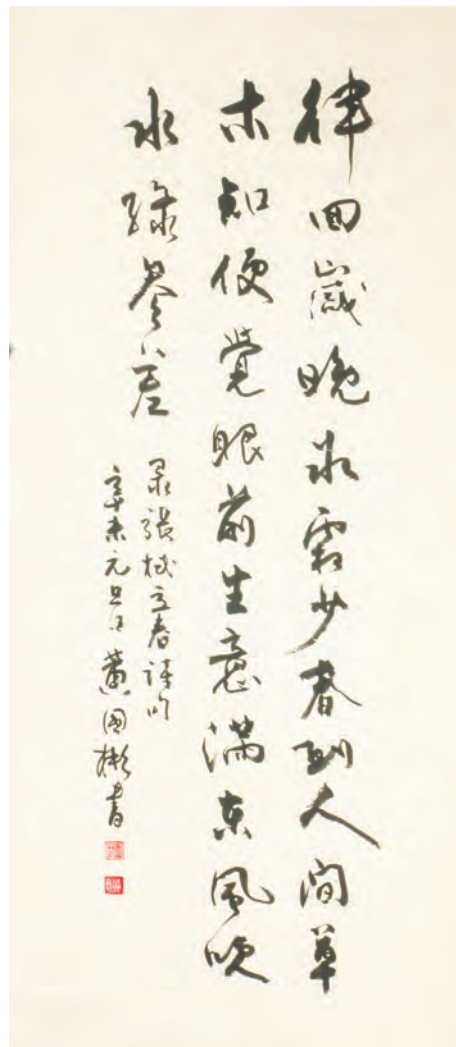 律回歲晚冰霜少春到人間草
木知便覺眼前生意滿東風吹
水綠參差
录張栻立春詩
辛未元旦日黃國彬書